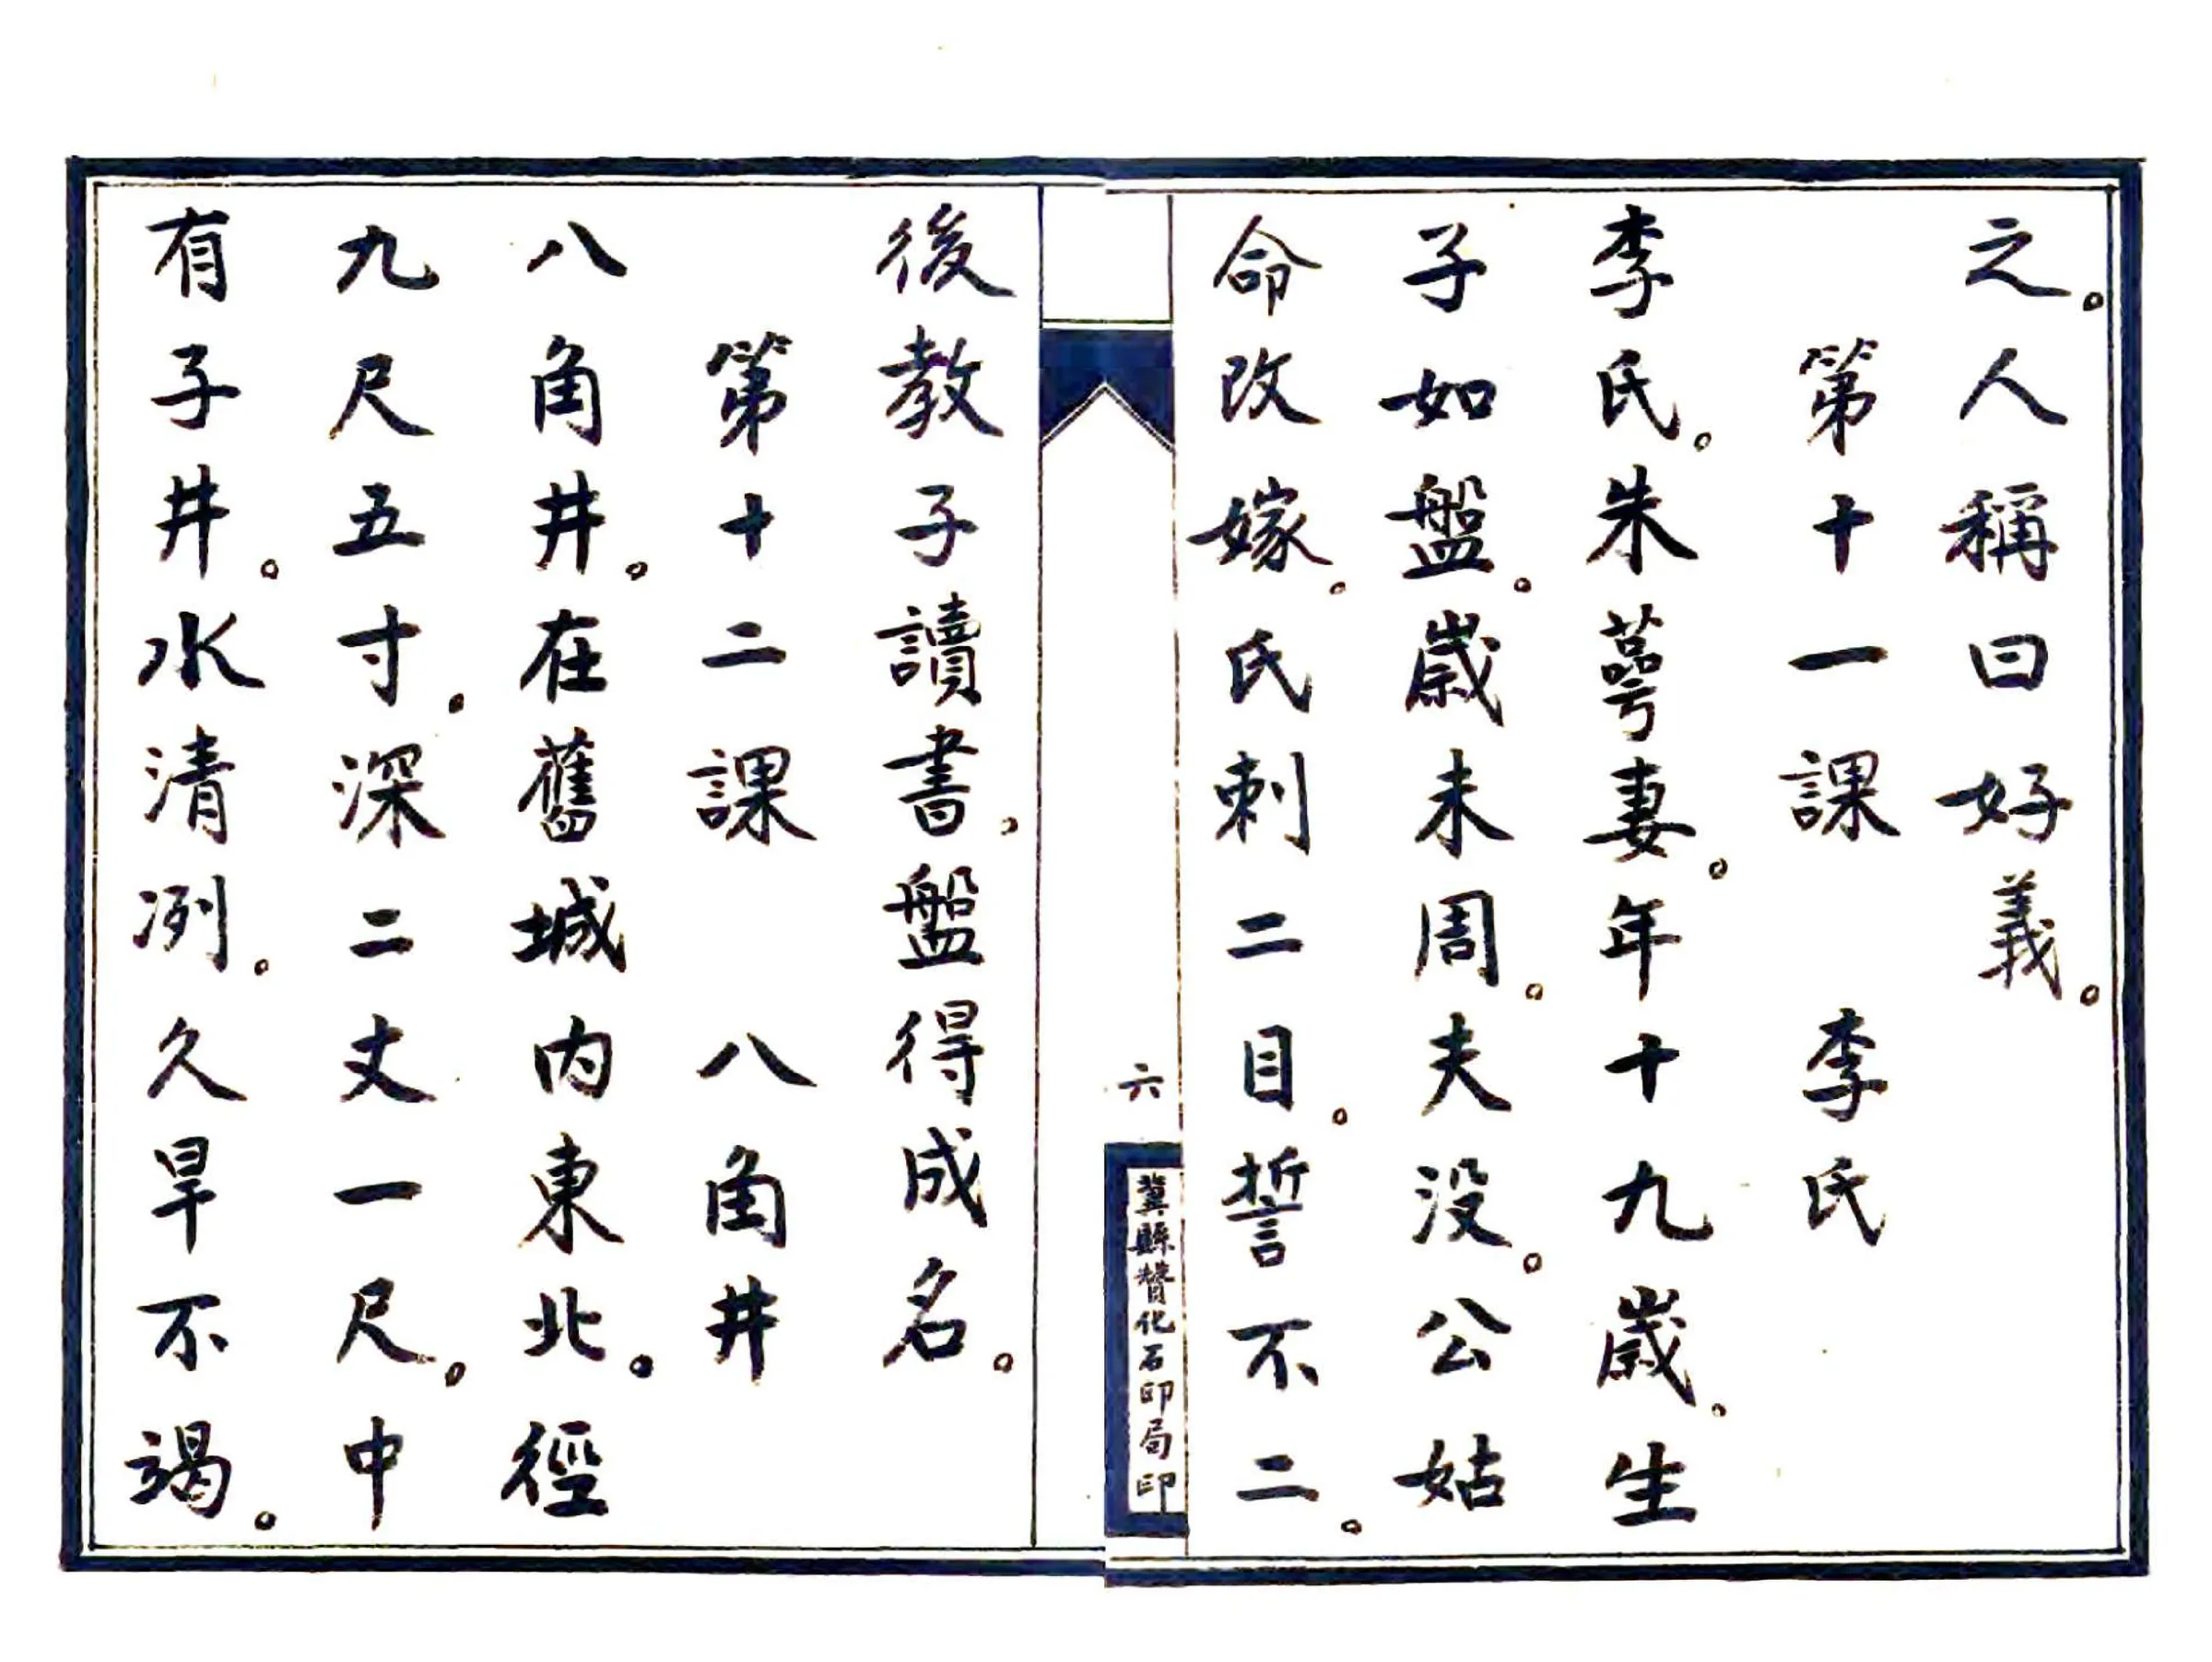 之。人稱曰好義。
第十一課 李氏
李氏。朱萼妻。年十九歲。生
子如盤。歲未周。夫沒。公姑
命改嫁。氏刺二目。誓不二。
六
冀縣贊化石印局印
後教子讀書。盤得成名。
第十二課 八角井
八角井。在舊城內東北。徑
九尺五寸。深二丈一尺。中
有子井。水清冽。久旱不竭。